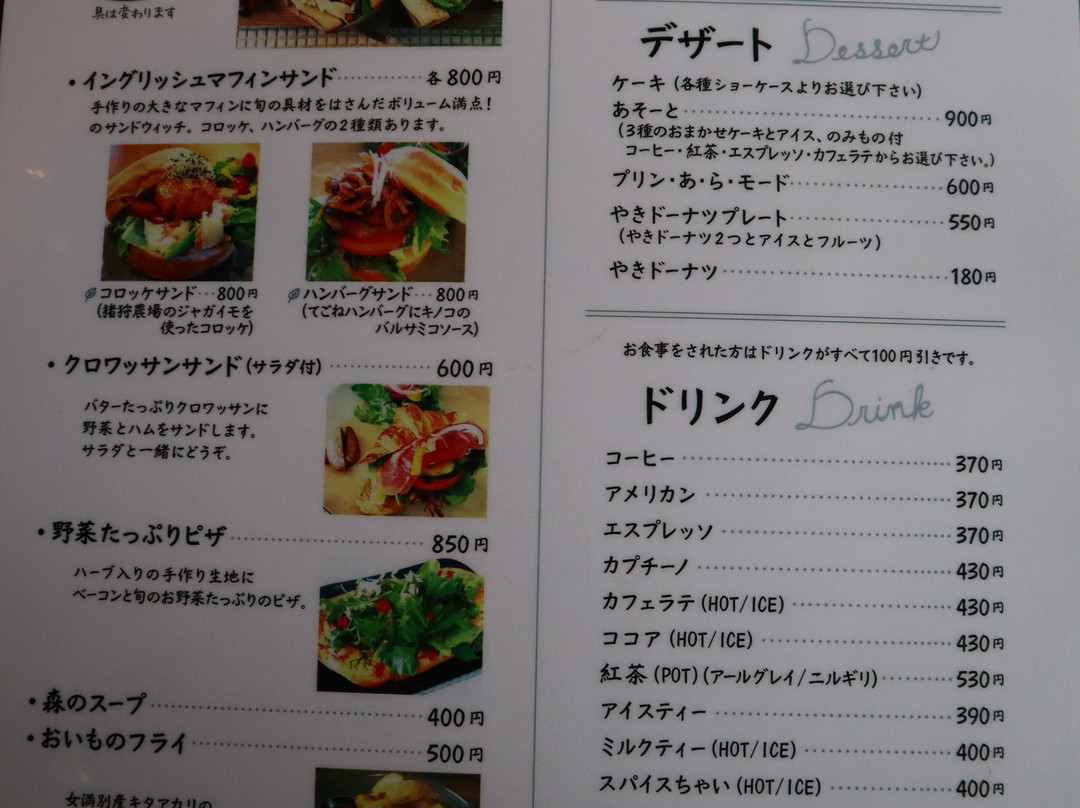 具は変わります
・イングリッシュマフィンサンド………各800円
手作りの大きなマフィンに旬の具材をはさんだボリューム満点！
のサンドウィッチ。コロッケ、ハンバーグの2種類あります。
コロッケサンド…800円
(猪狩農場のジャガイモを
使ったコロッケ)
ハンバーグサンド…800円
(てごねハンバーグにキノコの
バルサミコソース)
・クロワッサンサンド(サラダ付)………600円
バターたっぷりクロワッサンに
野菜とハムをサンドします。
サラダと一緒にどうぞ。
・野菜たっぷりピザ………850円
ハーブ入りの手作り生地に
ベーコンと旬のお野菜たっぷりのピザ。
・森のスープ………400円
・おいものフライ………500円
女満別産キタアカリの
デザート Dessert
ケーキ(各種ショーケースよりお選び下さい)
あそーと………900円
(3種のおまかせケーキとアイス、のみもの付
コーヒー・紅茶・エスプレッソ・カフェラテからお選び下さい。)
プリン・あ・ら・モード………600円
やきドーナツプレート………550円
(やきドーナツ2つとアイスとフルーツ)
やきドーナツ………180円
お食事をされた方はドリンクがすべて100円引きです。
ドリンク Drink
コーヒー………370円
アメリカン………370円
エスプレッソ………370円
カプチーノ………430円
カフェラテ(HOT/ICE)………430円
ココア(HOT/ICE)………430円
紅茶(POT)(アールグレイ/ニルギリ)………530円
アイスティー………390円
ミルクティー(HOT/ICE)………400円
スパイスちゃい(HOT/ICE)………400円